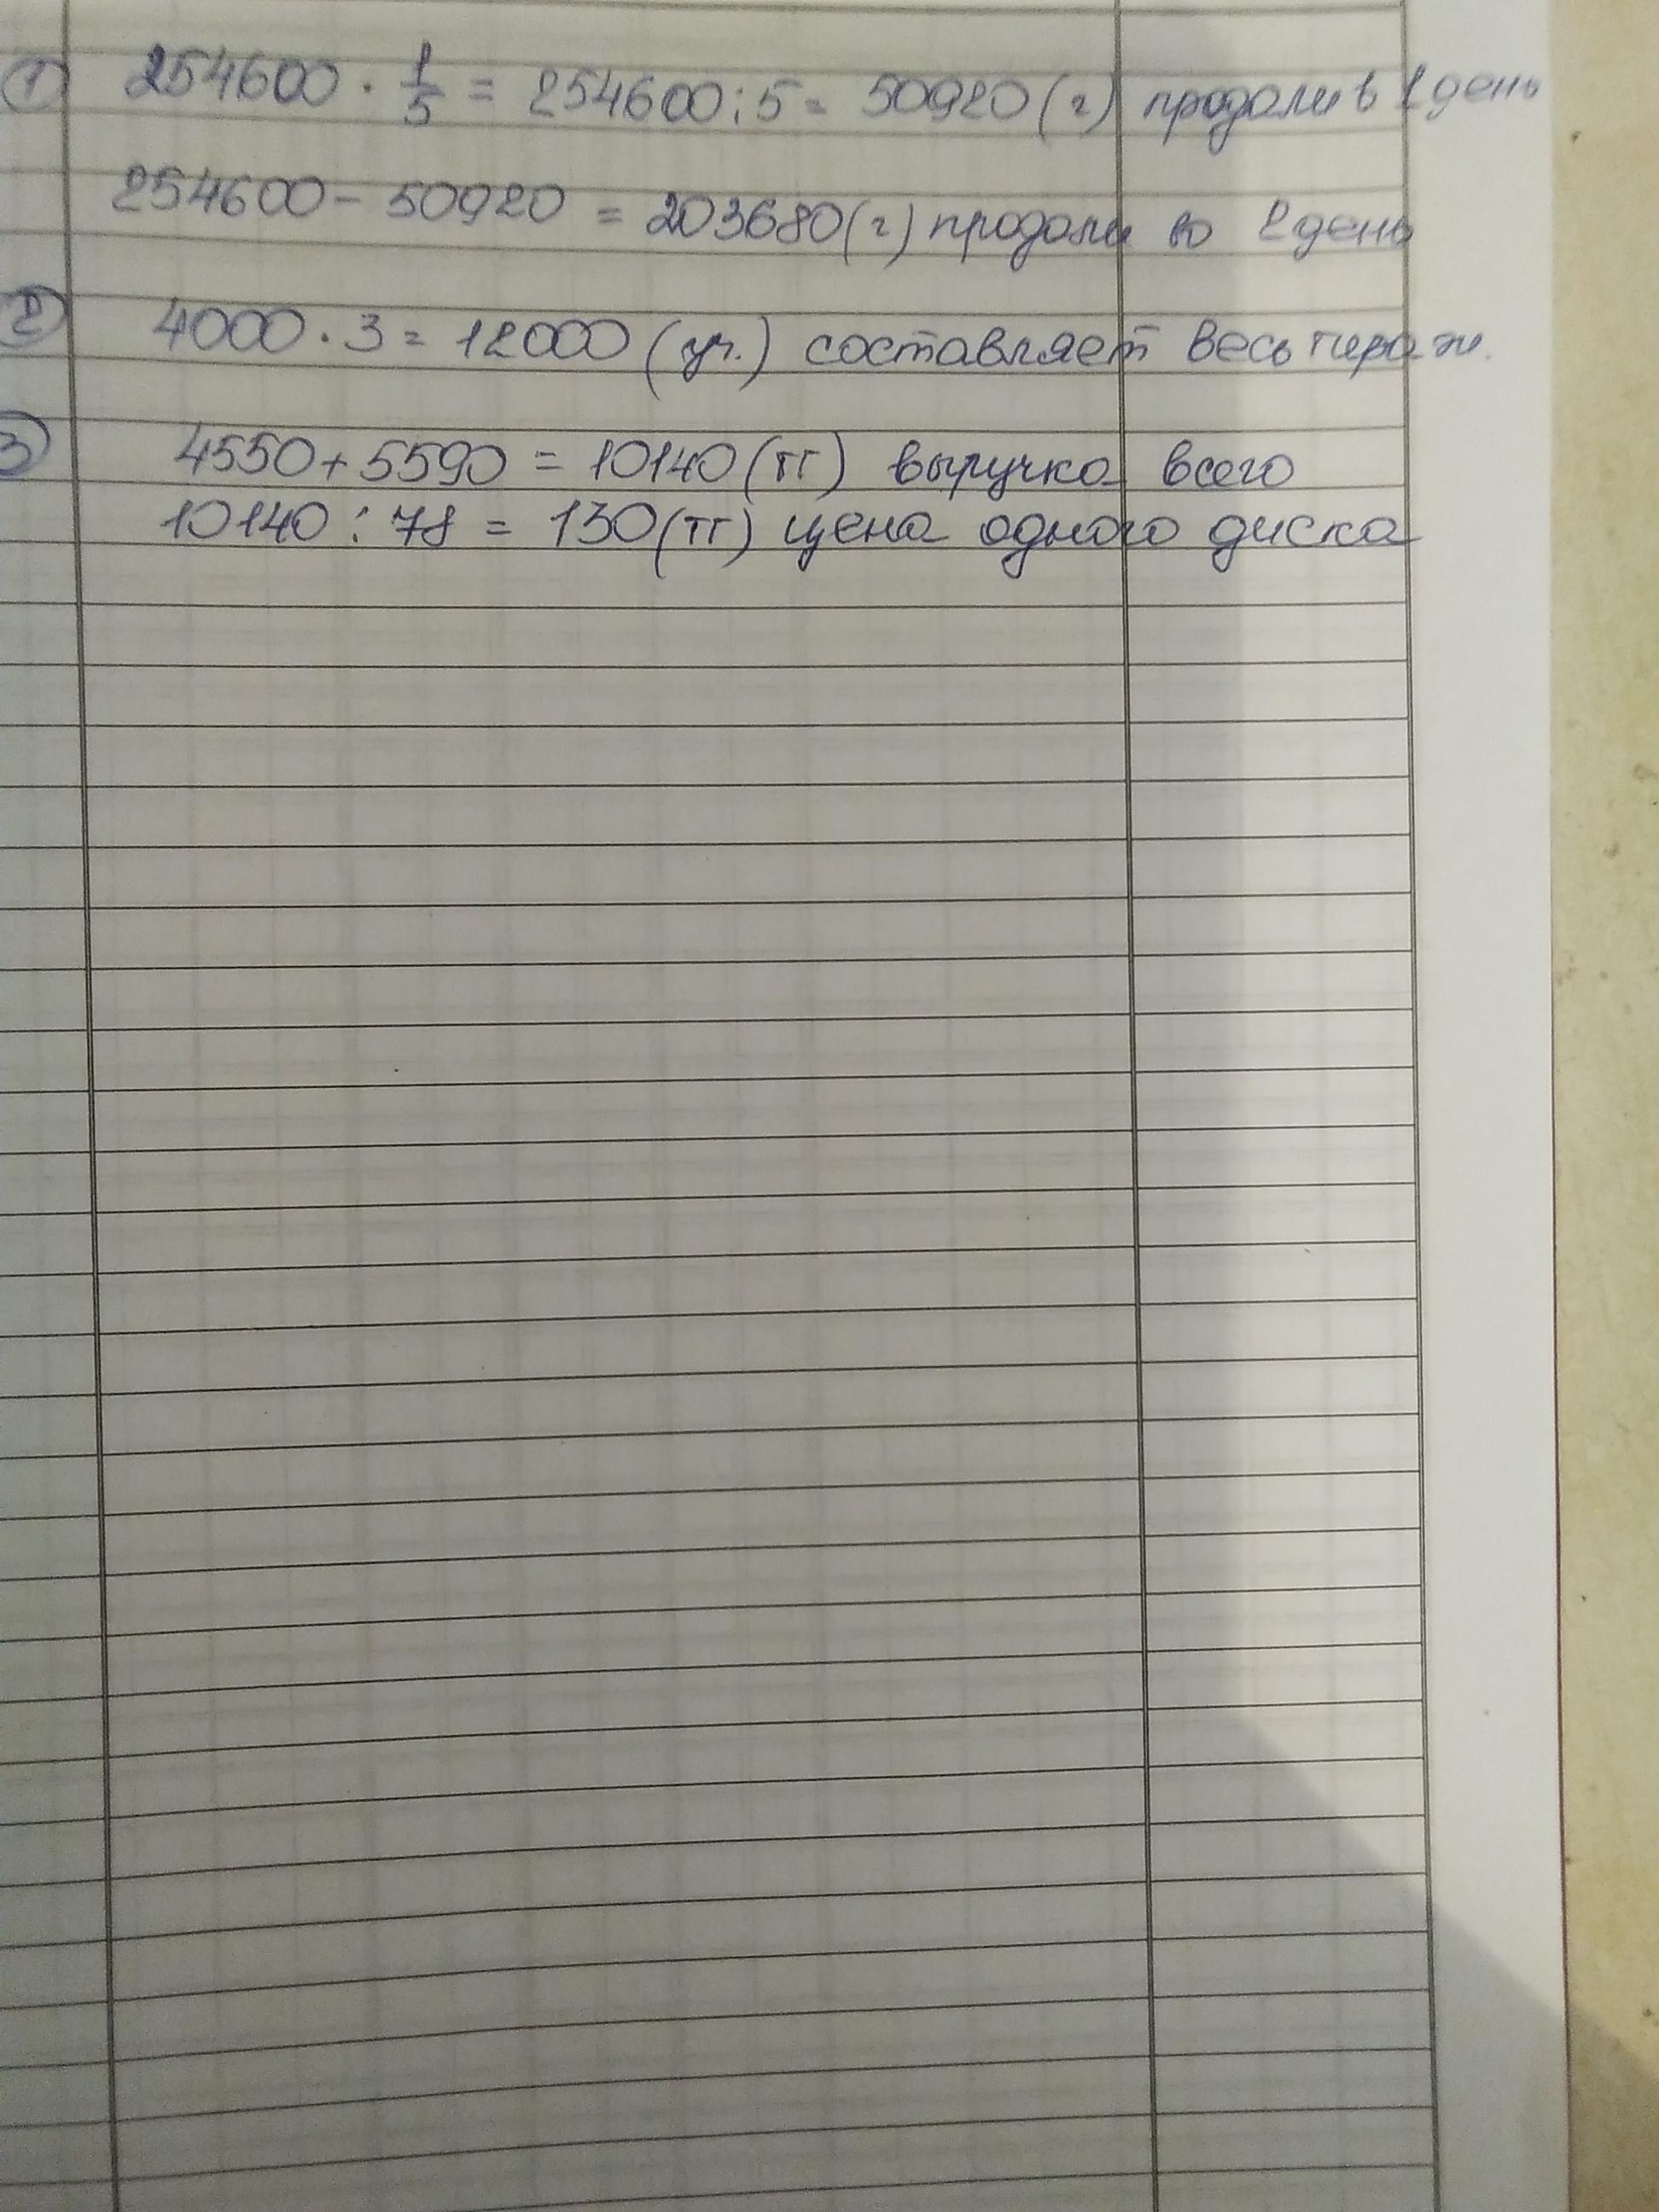 ① 254600 · 1/5 = 254600 : 5 = 50920 (г) продали в 1 день
254600 - 50920 = 203680 (г) продали во 2 день
② 4000 · 3 = 12000 (уч.) составляет весь тираж.
③ 4550 + 5590 = 10140 (тг) выручка всего
10140 : 78 = 130 (тг) цена одного диска